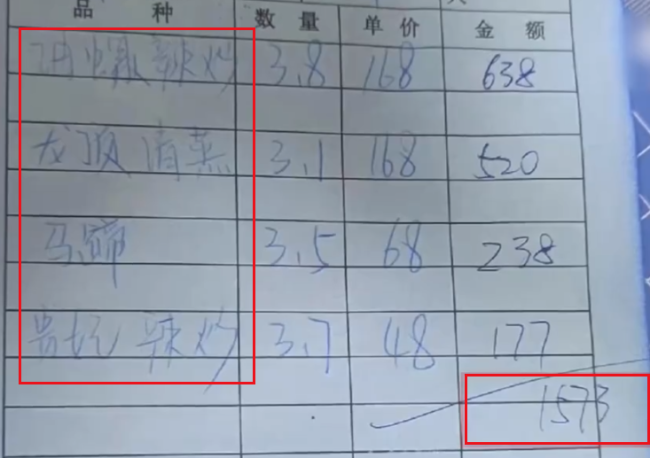 品 种 数 量 单 价 金 额
辣炒 3.8 168 638
龙虾 清蒸 3.1 168 520
马蹄 3.5 68 238
贵妃 辣炒 3.7 48 177
1573